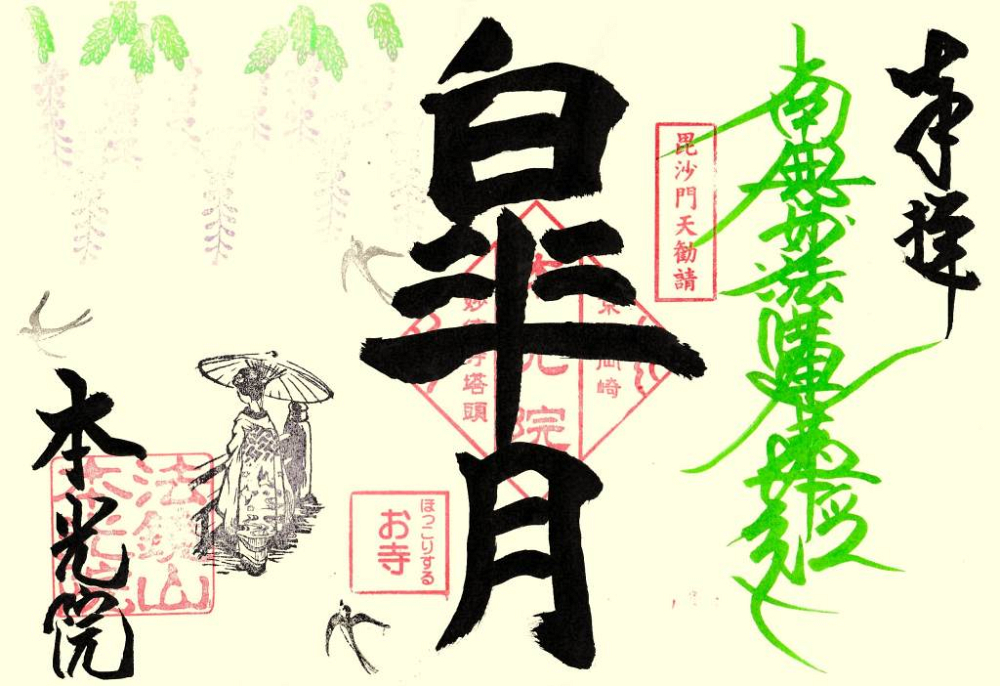 奉拝
南無妙法蓮華経
毘沙門天勧請
皐月
岡崎
本光院
妙傳寺塔頭
ほっこりする
お寺
法鏡山
本光院
本光院